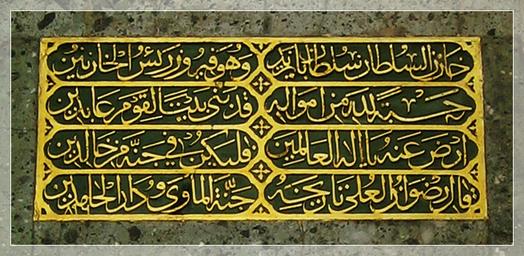 خازن السلطان سلطان بايزيد وهو فيروز رئيس الخازنين
حسبة لله من امواله قد بنى بيتا لقوم عابدين
ارض عنه يا إله العالمين فليكن في جنة من خالدين
قال رضوان العلى تاريخه جنة المأوى ودار الحامدين